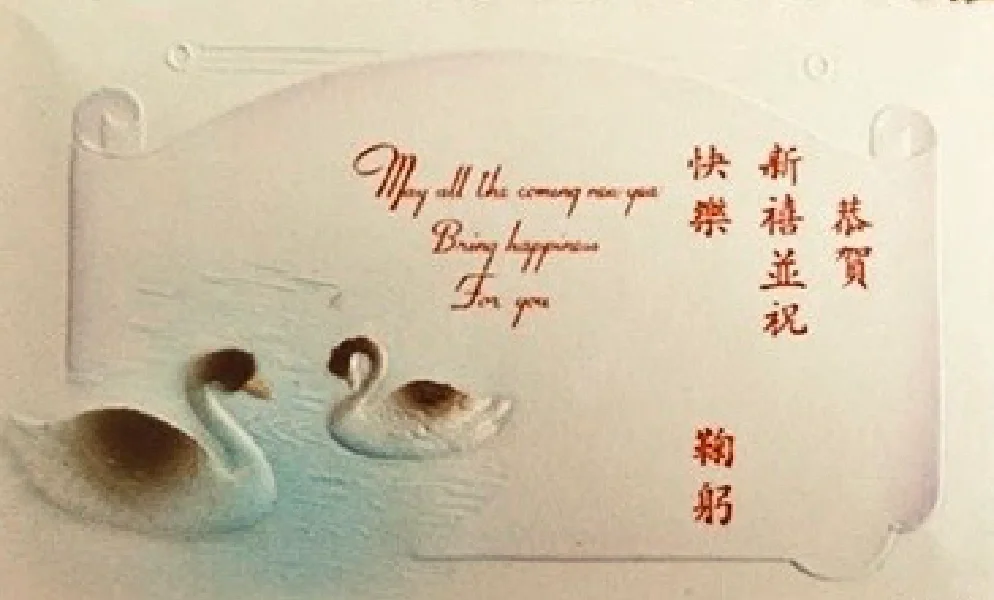 May all the coming new year
Bring happiness
For you
恭賀
新禧並祝
快樂
鞠躬